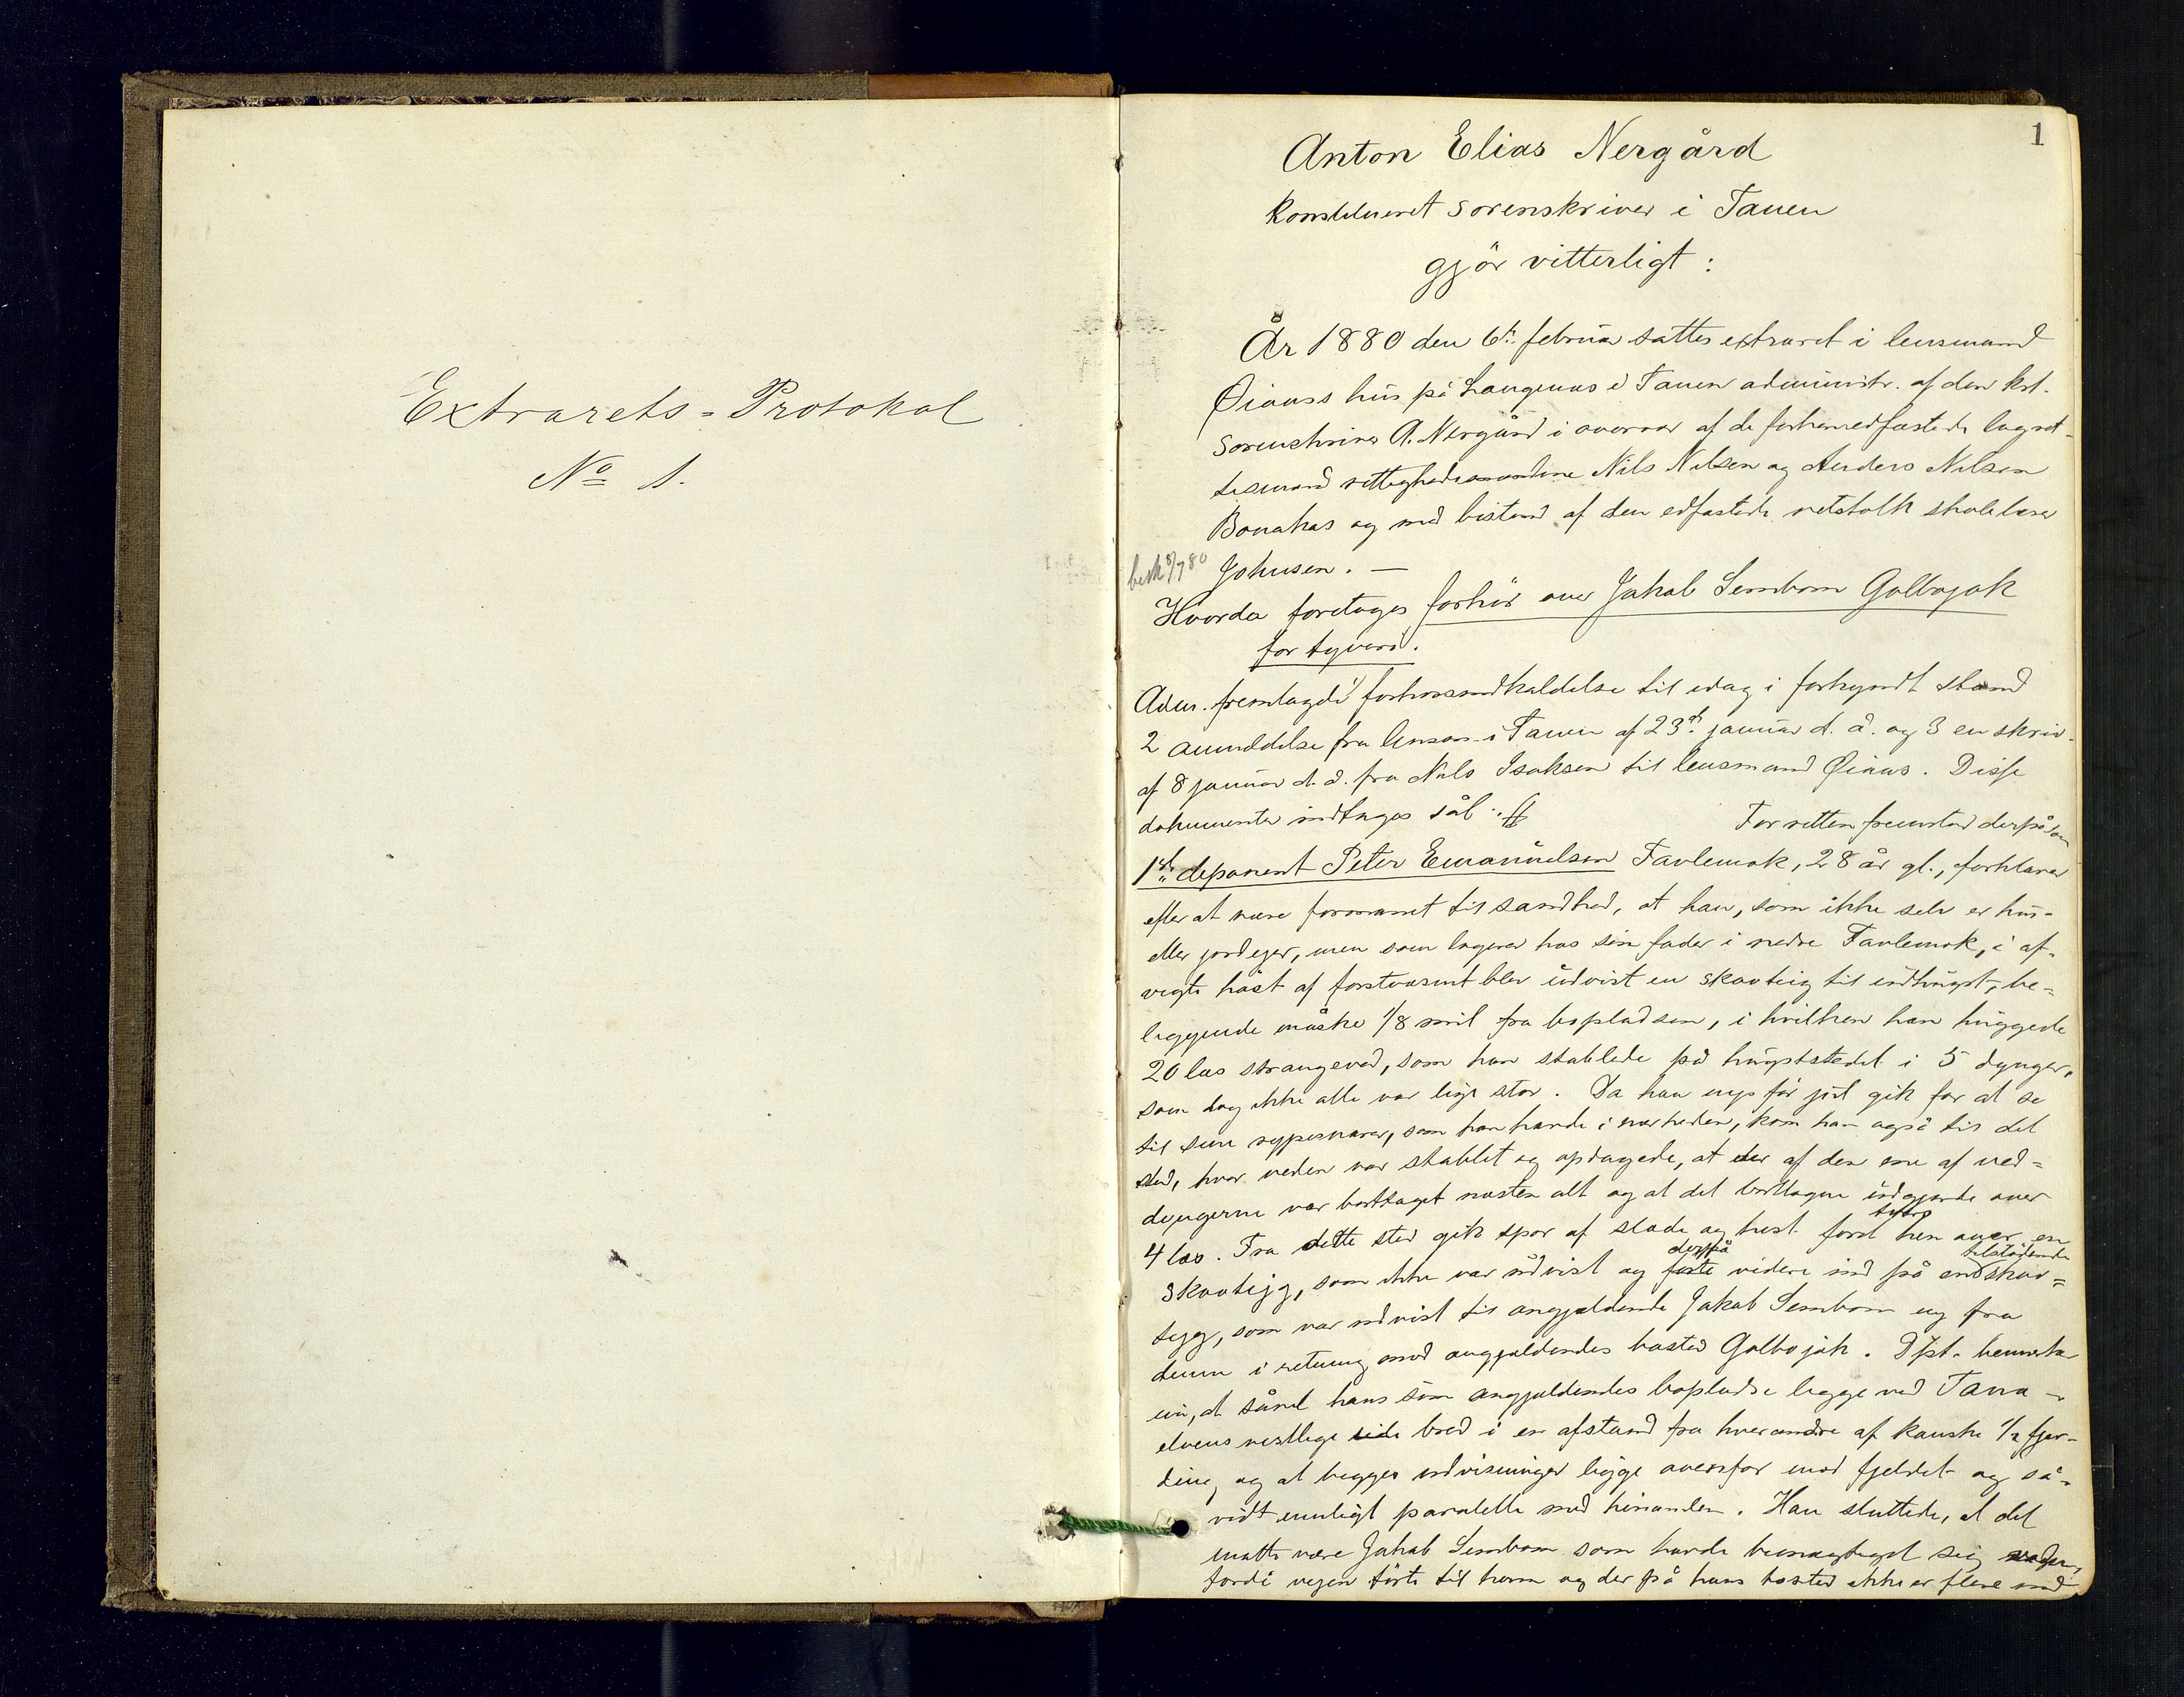 Extrarets-Protokol
Nº 1.
1
Anton Elias Nergård
konstitueret sorenskriver i Tanen
gjör vitterligt:
År 1880 den 6te februar sattes extraret i lensmand
hus på Langnes i Tanen administr. af den kst.
sorenskriver A. Nergård i overvær af de forhen edfæstede lagret-
tesmænd Nils Nilsen og Anders Nilsen
Bonakas og med bistand af den edfæstede retstolk skolelærer
besk 8/7 80
Johnsen. —
Hvorda foretoges forhör over Jakob Sembom Golbojok
for tyveri.
Adm. fremlagde 1) forhörsindkaldelse til idag i forkyndt stand
2 anmeldelse fra lensm. i Tanen af 23de januar d. å. og 3 en skriv.
af 8 januar d. å. fra Nils Isaksen til lensmand. Disse
dokumenter indtages sål: //
For retten fremstod derpå som
1ste deponent Peter Emanuelsen Favlemok, 28 år gl., forklarer
efter at være formanet til sandhed, at han, som ikke selv er hus-
eller jordejer, men som logerer hos sin fader i nedre Favlemok, i af-
vigte höst af forstvæsenet blev udvist en skovteig til udhugst, be-
liggende måske 1/8 mil fra bopladsen, i hvilken han huggede
20 læs strangeved, som han stablede på hugststedet i 5 dynger,
som dog ikke alle var lige stor. Da han nys för jul gik for at se
til sine rypesnarer, som han havde i nærheden, kom han også til det
sted, hvor veden var stablet og opdagede, at der af den ene af ved-
dyngerne var borttaget næsten alt og at det borttagne udgjorde over
4 læs. Fra dette sted gik spor af slæde og hest först hen over en
skovteig, som ikke var udvist og derpå videre ind på en tilstödende skov-
teig, som var udvist til angjældende Jakob Sembom og fra
denne i retning mod angjældendes bosted Golbojok. Dpt. bemærker
at såvel hans som angjældendes bopladse ligge ved Tana-
elvens vestlige bred i en afstand fra hverandre af kanske 1/2 fjer-
ding, og at begges udvisninger ligge ovenfor mod fjeldet og så-
vidt muligt paralelle med hinanden. Han sluttede, at det
måtte være Jakob Sembom som havde bemægtiget sig veden,
fordi vejen förte til ham og der på hans bosted ikke er flere mænd